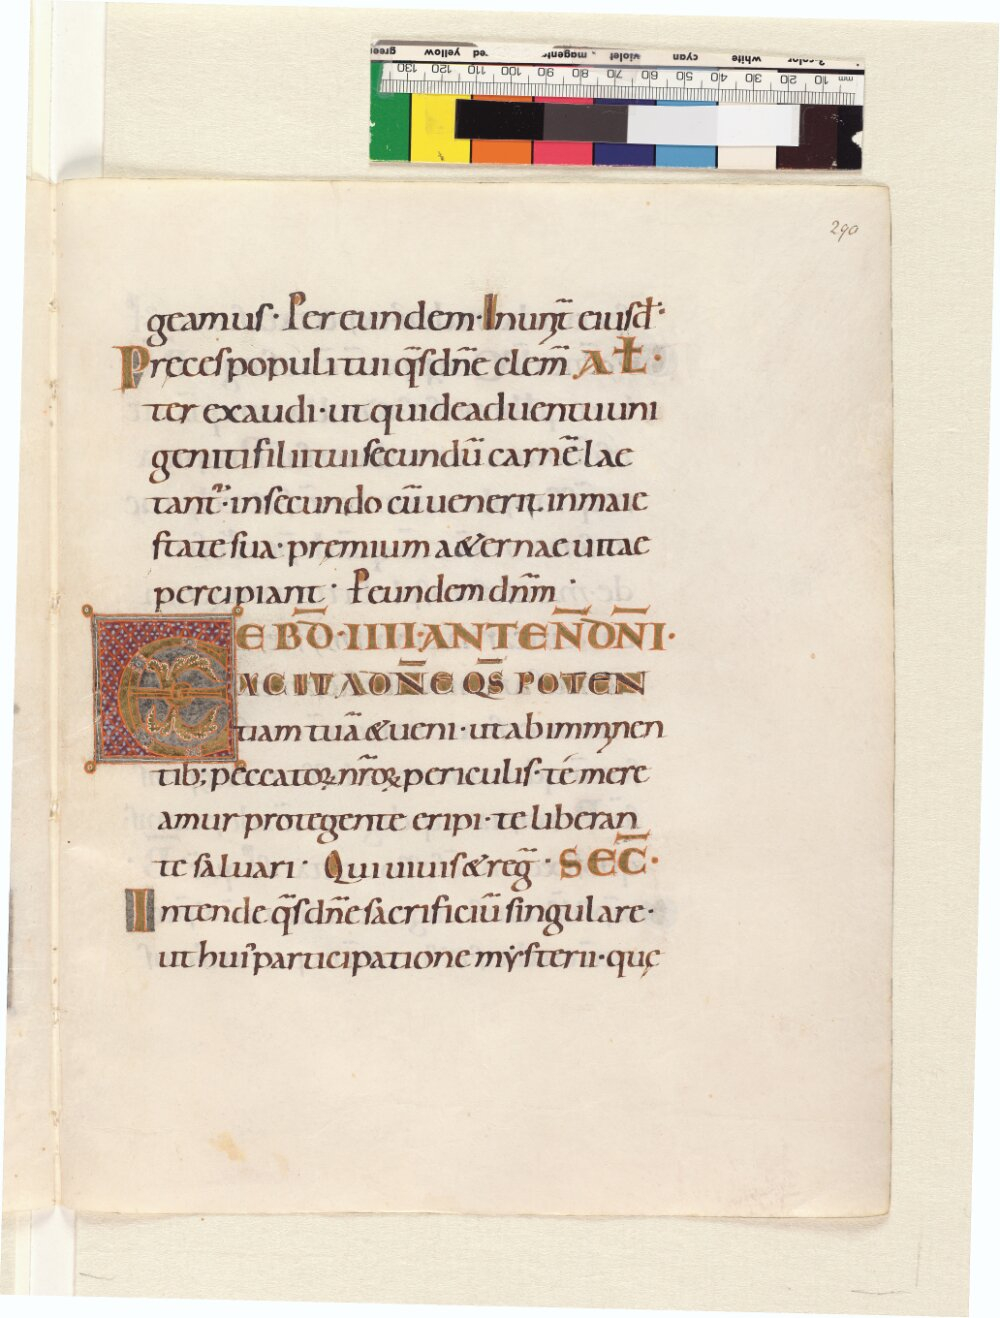 green yellow red magenta violet cyan white 3-color
130 120 110 100 90 80 70 60 50 40 30 20 10 mm
290
geamus· Per eundem· In nuñt̄ eiusđ:
Preces populi tui q̄s dn̄e clem̄ AŁ·
ter exaudi· ut qui de aduentu uni
geniti filii tui secundū carnē lae
tant᷑· in secundo cū uenerit in maie
state sua· premium a&ernae uitae
percipiant· P eundem dn̄m·
EBD̄·IIII·ANTE ND̄N̄I·
EACITA DN̄E Q̄S POTEN
tiam tuā &ueni· ut ab imminen
tib; peccatoꝝ nr̄oꝝ periculis· te mere
amur protegente eripi· te liberan
te saluari· Qui uiuis &reḡ· SEC̄·
Intende q̄s dn̄e sacrificiū singulare·
ut hui᾽ participatione mẏsterii· quę